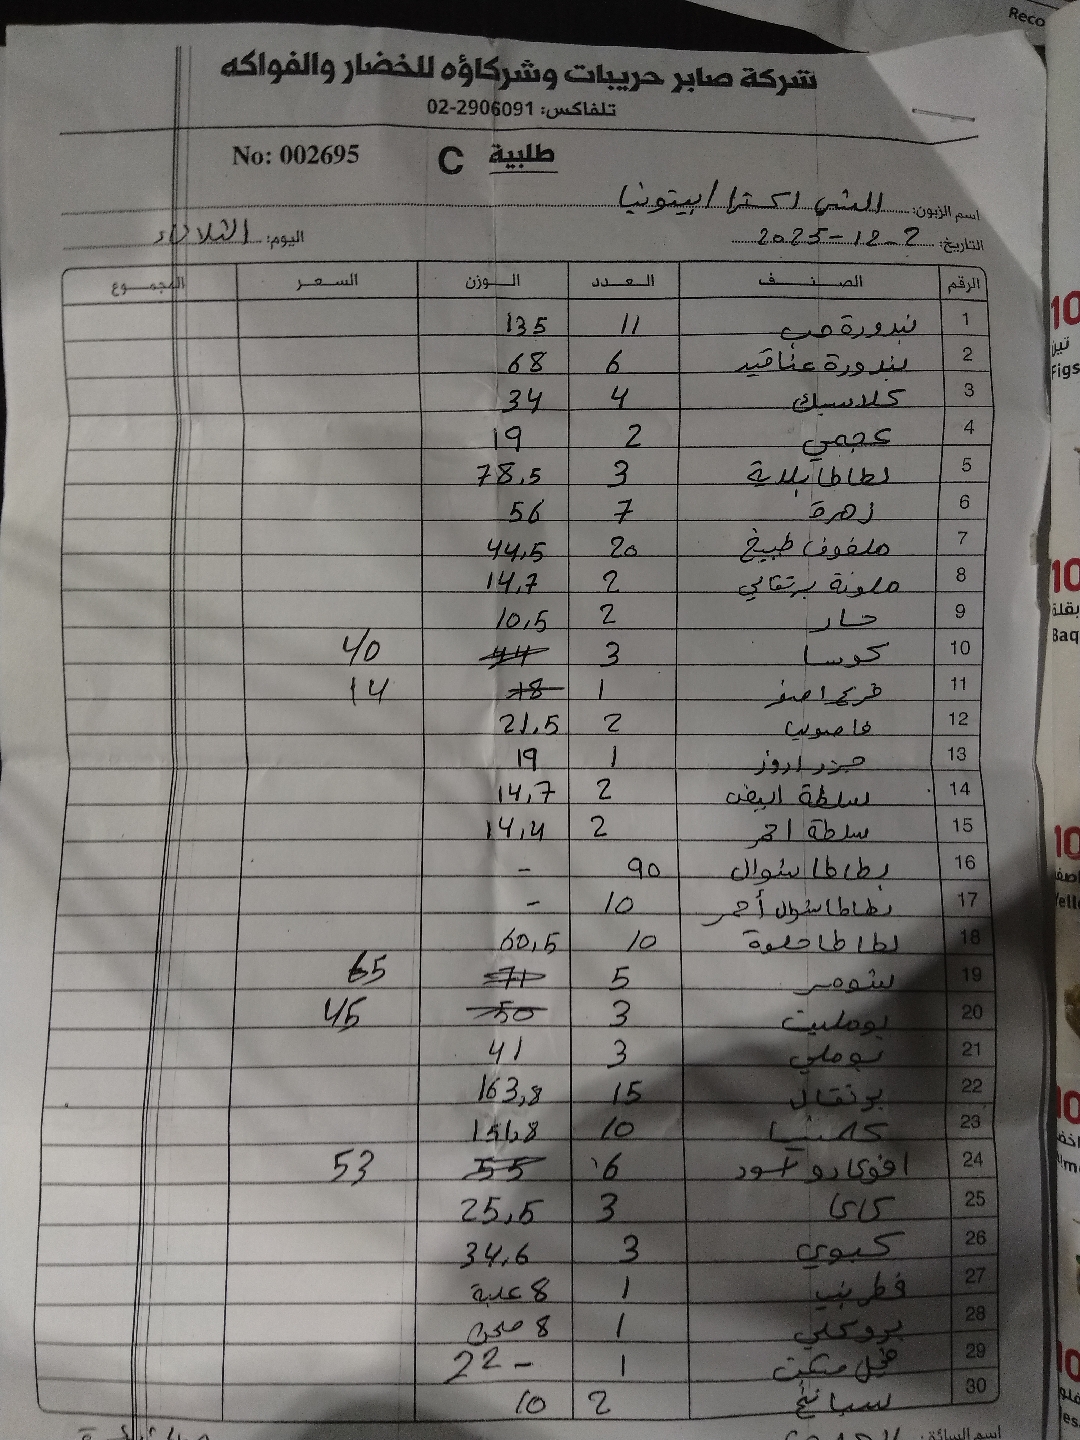 Reco
شركة صابر حريبات وشركاؤه للخضار والفواكه
تلفاكس: 02-2906091
No: 002695 C طلبية
اسم الزبون: الشني اكسترا / بيتونيا
التاريخ: 2-12-2025 اليوم: الثلاثاء
الرقم الصنف العدد الوزن السعر المجموع
1 بندورة حب 11 135
2 بندورة عناقيد 6 68
3 كلاسيك 4 34
4 عجمي 2 19
5 بطاطا بلدية 3 78,5
6 زهرة 7 56
7 ملفوف طبيخ 20 44,5
8 ملونة برتقالي 2 14,7
9 حار 2 10,5
10 كوسا 3 44 40
11 قريع اصفر 1 18 14
12 فاصوليا 2 21,5
13 جزر اروز 1 19
14 سلطة ابيض 2 14,7
15 سلطة احمر 2 14,4
16 بطاطا شوال 90 -
17 بطاطا شوال أحمر 10 -
18 بطاطا حلوة 10 60,5
19 شومر 5 71 65
20 بومليت 3 50 45
21 بوملي 3 41
22 برتقال 15 163,8
23 كلمنتينا 10 151,8
24 افوكادو اسود 6 55 53
25 كاكا 3 25,5
26 كيوي 3 34,6
27 فطر بني 1 8 علبة
28 بروكلي 1 8 صحن
29 فجل مبكت 1 22 -
30 سبانخ 2 10
اسم السائق:
10
تين
Figs
10
بقلة
Baq
10
10
10